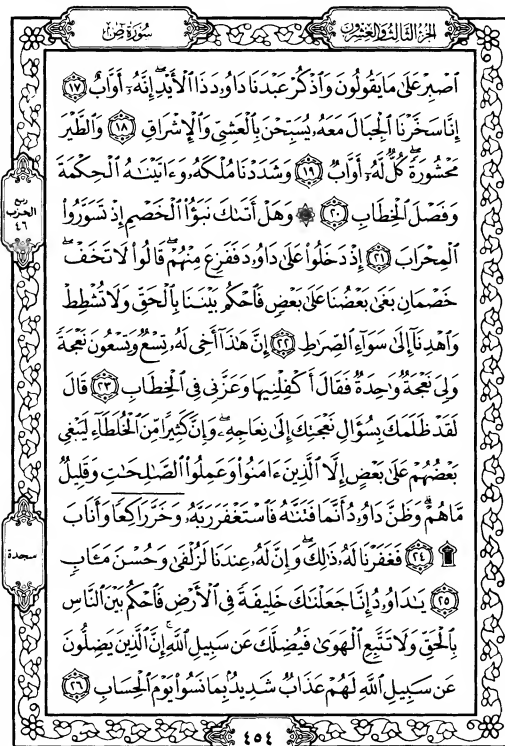 سُورَةُ صٓ
الجُزءُ الثَّالِثُ وَالعِشْرُونَ
ٱصۡبِرۡ عَلَىٰ مَا يَقُولُونَ وَٱذۡكُرۡ عَبۡدَنَا دَاوُۥدَ ذَا ٱلۡأَيۡدِۖ إِنَّهُۥٓ أَوَّابٌ ١٧
إِنَّا سَخَّرۡنَا ٱلۡجِبَالَ مَعَهُۥ يُسَبِّحۡنَ بِٱلۡعَشِيِّ وَٱلۡإِشۡرَاقِ ١٨ وَٱلطَّيۡرَ
مَحۡشُورَةٗۖ كُلّٞ لَّهُۥٓ أَوَّابٞ ١٩ وَشَدَدۡنَا مُلۡكَهُۥ وَءَاتَيۡنَٰهُ ٱلۡحِكۡمَةَ
وَفَصۡلَ ٱلۡخِطَابِ ٢٠ ۞ وَهَلۡ أَتَىٰكَ نَبَؤُاْ ٱلۡخَصۡمِ إِذۡ تَسَوَّرُواْ
ٱلۡمِحۡرَابَ ٢١ إِذۡ دَخَلُواْ عَلَىٰ دَاوُۥدَ فَفَزِعَ مِنۡهُمۡۖ قَالُواْ لَا تَخَفۡۖ
خَصۡمَانِ بَغَىٰ بَعۡضُنَا عَلَىٰ بَعۡضٖ فَٱحۡكُم بَيۡنَنَا بِٱلۡحَقِّ وَلَا تُشۡطِطۡ
وَٱهۡدِنَآ إِلَىٰ سَوَآءِ ٱلصِّرَٰطِ ٢٢ إِنَّ هَٰذَآ أَخِي لَهُۥ تِسۡعٞ وَتِسۡعُونَ نَعۡجَةٗ
وَلِيَ نَعۡجَةٞ وَٰحِدَةٞ فَقَالَ أَكۡفِلۡنِيهَا وَعَزَّنِي فِي ٱلۡخِطَابِ ٢٣ قَالَ
لَقَدۡ ظَلَمَكَ بِسُؤَالِ نَعۡجَتِكَ إِلَىٰ نِعَاجِهِۦۖ وَإِنَّ كَثِيرٗا مِّنَ ٱلۡخُلَطَآءِ لَيَبۡغِي
بَعۡضُهُمۡ عَلَىٰ بَعۡضٍ إِلَّا ٱلَّذِينَ ءَامَنُواْ وَعَمِلُواْ ٱلصَّٰلِحَٰتِ وَقَلِيلٞ
مَّا هُمۡۗ وَظَنَّ دَاوُۥدُ أَنَّمَا فَتَنَّٰهُ فَٱسۡتَغۡفَرَ رَبَّهُۥ وَخَرَّۤ رَاكِعٗاۤ وَأَنَابَ
۩ ٢٤ فَغَفَرۡنَا لَهُۥ ذَٰلِكَۖ وَإِنَّ لَهُۥ عِندَنَا لَزُلۡفَىٰ وَحُسۡنَ مَـَٔابٖ
٢٥ يَٰدَاوُۥدُ إِنَّا جَعَلۡنَٰكَ خَلِيفَةٗ فِي ٱلۡأَرۡضِ فَٱحۡكُم بَيۡنَ ٱلنَّاسِ
بِٱلۡحَقِّ وَلَا تَتَّبِعِ ٱلۡهَوَىٰ فَيُضِلَّكَ عَن سَبِيلِ ٱللَّهِۚ إِنَّ ٱلَّذِينَ يَضِلُّونَ
عَن سَبِيلِ ٱللَّهِ لَهُمۡ عَذَابٞ شَدِيدُۢ بِمَا نَسُواْ يَوۡمَ ٱلۡحِسَابِ ٢٦
ربع
الحزب
٤٦
سجدة
٤٥٤